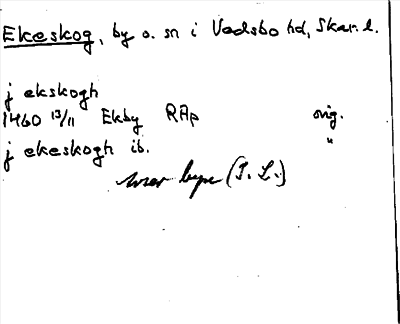 Ekeskog, by o. sn i Vadsbo hd, Skar. l.
j ekskogh
1460 13/11 Ekby RAp orig.
j ekeskogh ib. "
(I. L.)